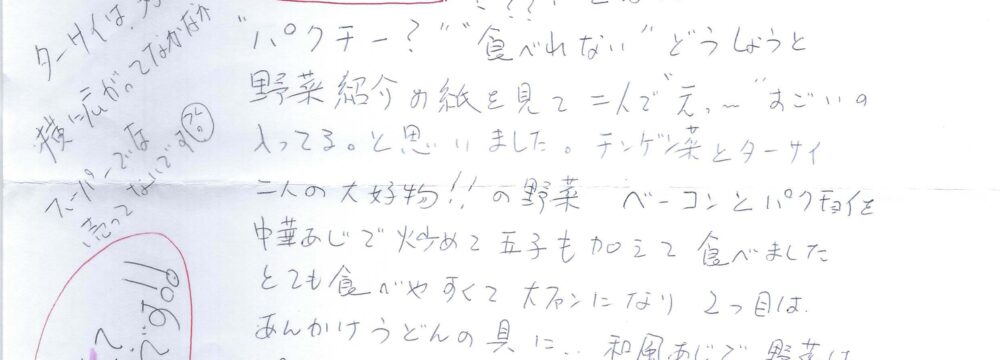 "パクチー?" "食べれない" どうしようと
野菜紹介の紙を見て 二人で え〜 "すごいの
入ってる。と思いました。チンゲン菜とターサイ
二人の大好物!! の野菜 ベーコンとパクチョイを
中華あじで炒めて 玉子も加えて 食べました
とても食べやすくて 大ファンになり 2つ目は、
あんかけうどんの具に… 和風あじで 野菜は
ターサイは、
横に広がってなかなか
スーパーでは
売ってないです